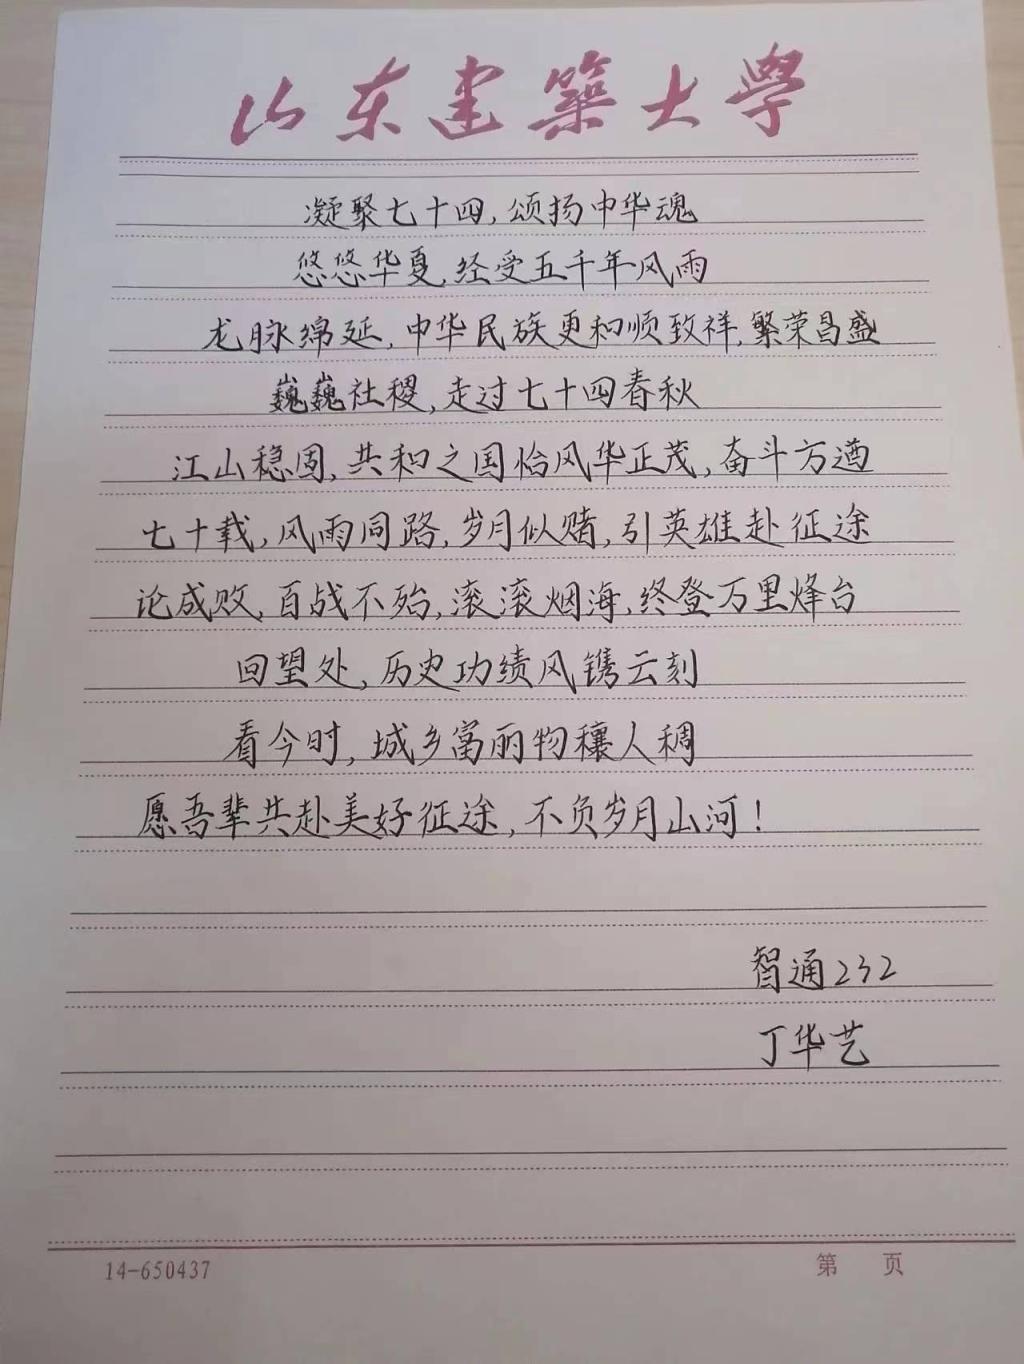 山东建築大學
凝聚七十四,颂扬中华魂
悠悠华夏,经受五千年风雨
龙脉绵延,中华民族更和顺致祥,繁荣昌盛
巍巍社稷,走过七十四春秋
江山稳固,共和之国恰风华正茂,奋斗方遒
七十载,风雨同路,岁月似赌,引英雄赴征途
论成败,百战不殆,滚滚烟海,终登万里烽台
回望处,历史功绩风镌云刻
看今时,城乡富丽物穰人稠
愿吾辈共赴美好征途,不负岁月山河!
智通232
丁华艺
14-650437
第 页